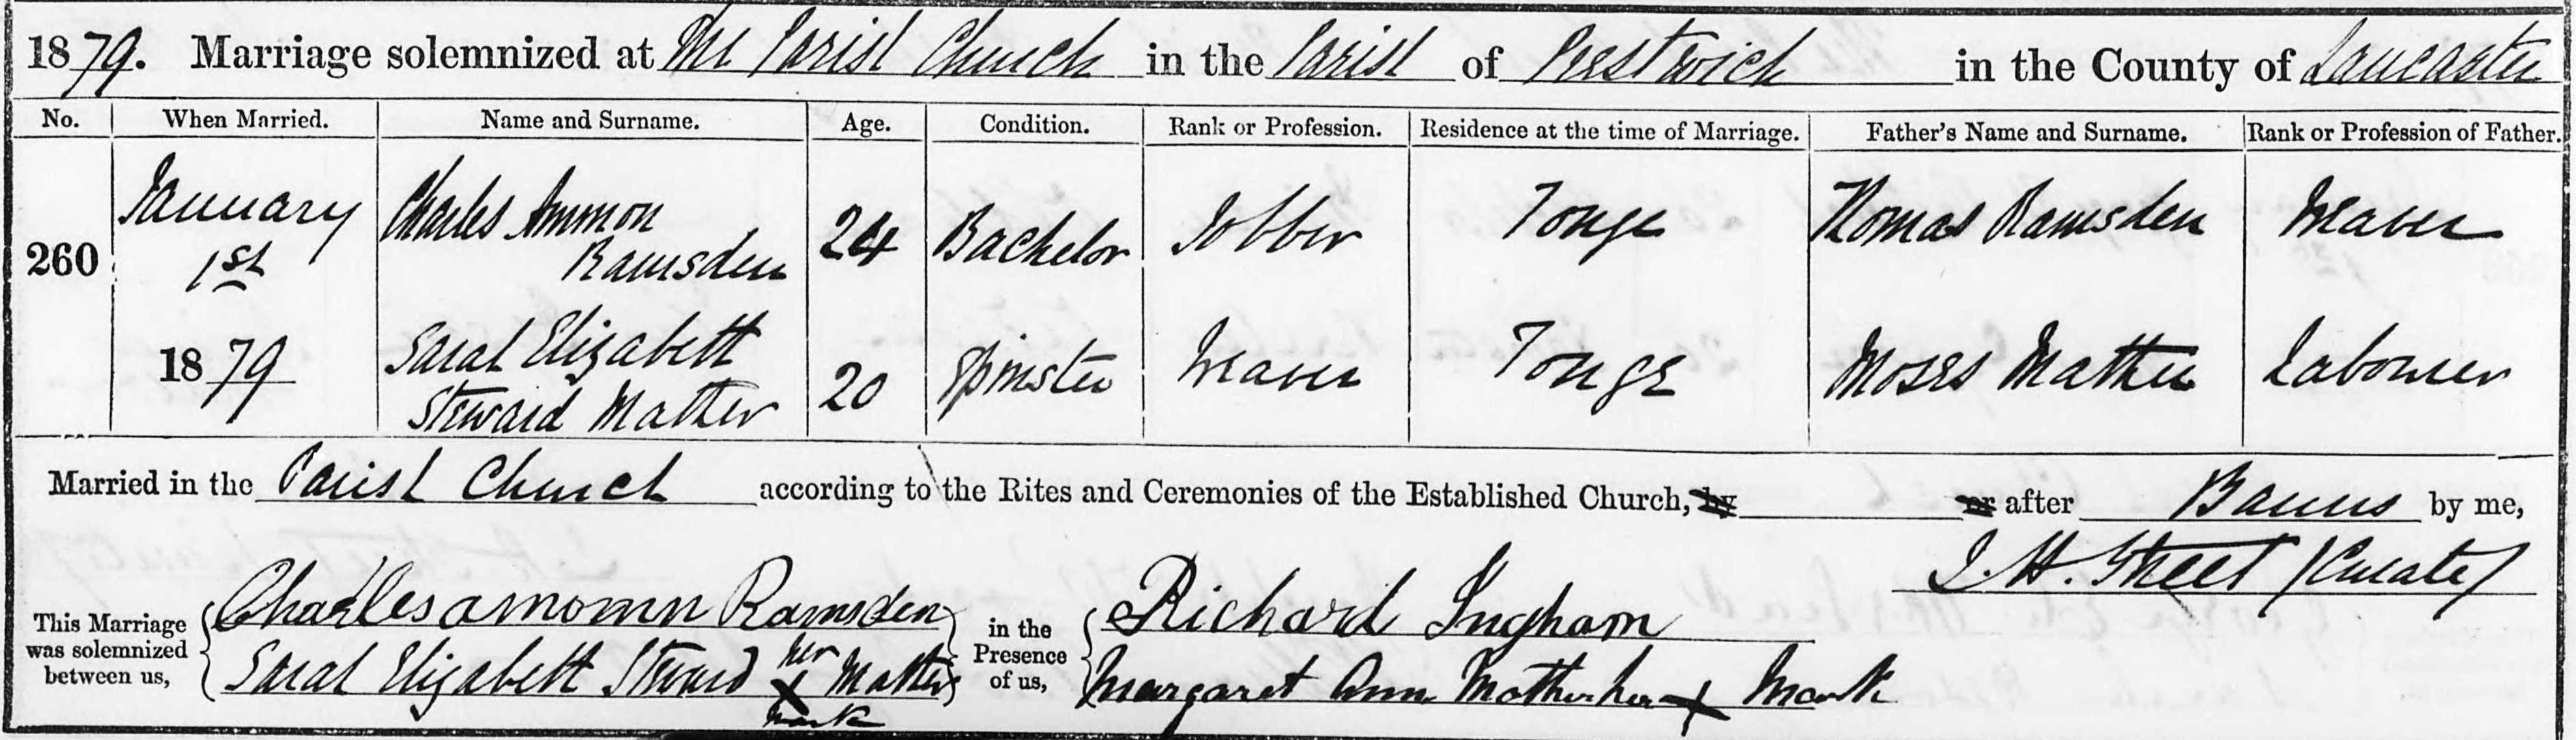 1879. Marriage solemnized at The Parish Church in the Parish of Prestwich in the County of Lancaster
No. When Married. Name and Surname. Age. Condition. Rank or Profession. Residence at the time of Marriage. Father's Name and Surname. Rank or Profession of Father.
260 January 1st 1879 Charles Ammon Ramsden 24 Bachelor Jobber Tonge Thomas Ramsden Weaver
Sarah Elizabeth Steward Mather 20 Spinster Weaver Tonge Moses Mather Labourer
Married in the Parish Church according to the Rites and Ceremonies of the Established Church, by or after Banns by me,
J. H. Street (Curate)
This Marriage was solemnized between us, Charles amomn Ramsden in the Presence of us, Richard Ingham
Sarah Elizabeth Steward her X mark Mather Margaret Ann Mother her X Mark